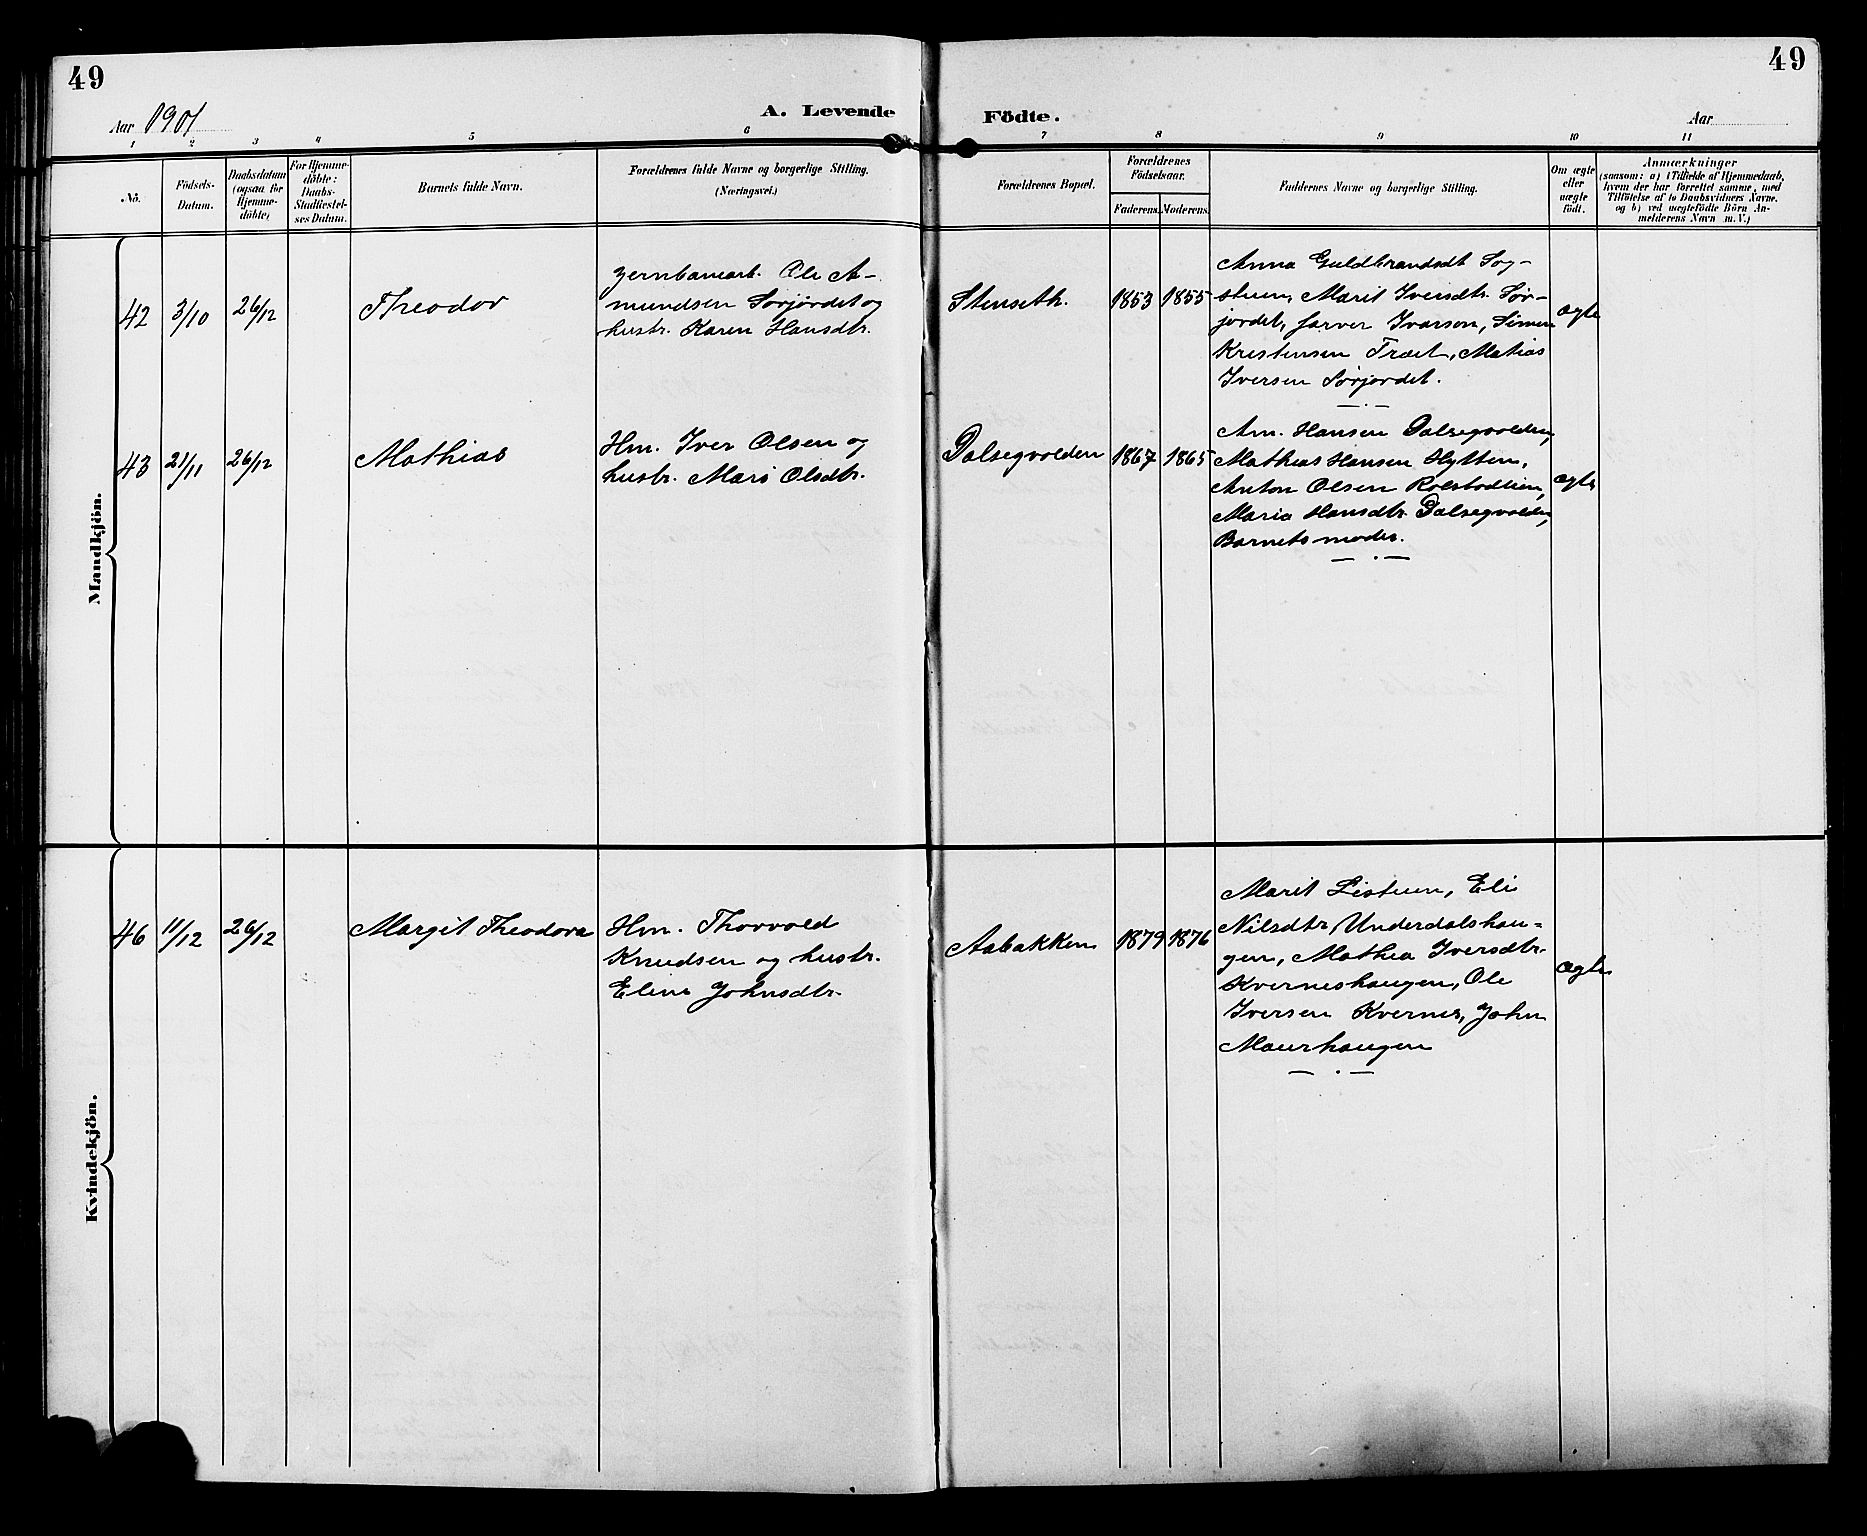 49
49
Aar 1901
A. Levende
Födte.
Aar
1 2 3 4 5 6 7 8 9 10 11
Nö.
Födsels-
Datum.
Daabsdatum
(ogsaa for
Hjemme-
döbte)
For Hjemme-
döbte:
Daabs-
Stadfæstel-
ses Datum.
Barnets fulde Navn.
Forældrenes fulde Navne og borgerlige Stilling.
(Næringsvei.)
Forældrenes Bopæl.
Forældrenes
Födselsaar.
Faderens. Moderens.
Faddernes Navne og borgerlige Stilling.
Om ægte
eller
uægte
födt.
Anmærkninger
(saasom: a) i Tilfælde af Hjemmedaab,
hvem der har forrettet samme, med
Tilföielse af to Daabsvidners Navne.
og b) ved uægtefödte Börn An-
melderens Navn m. V.)
Mandkjön.
42
3/10
26/12
Theodor
Jernbanearb. Ole A-
mundsen Sørjordet og
hustr. Karen Hansdtr.
Stenseth.
1853
1855
Anna Guldbrandsdt Sog-
stuen, Marit Iversdtr. Sør-
jordet, farver Ivarson, Simen
Kristensen Træet, Matias
Iversen Sørjordet.
ægte
43
21/11
26/12
Mathias
Hm. Iver Olsen og
hustr. Mari Olsdtr.
Dalsegvolden
1867
1865
Am. Hansen Dalsegvolden,
Mathias Hansen Hytten,
Anton Olsen Rolstadlien,
Maria Hansdtr. Dalsegvolden,
Barnets moder.
ægte
Kvindekjön.
46
11/12
26/12
Margit Theodora
Hm. Thorvold
Knudsen og hustr.
Eline Johnsdtr.
Aabakken
1879
1876
Marit Listuen, Eli
Nilsdtr Underdalshau-
gen, Mathea Iversdtr.
Kverneshaugen, Ole
Iversen Kvernes, John
Maurhaugen
ægte